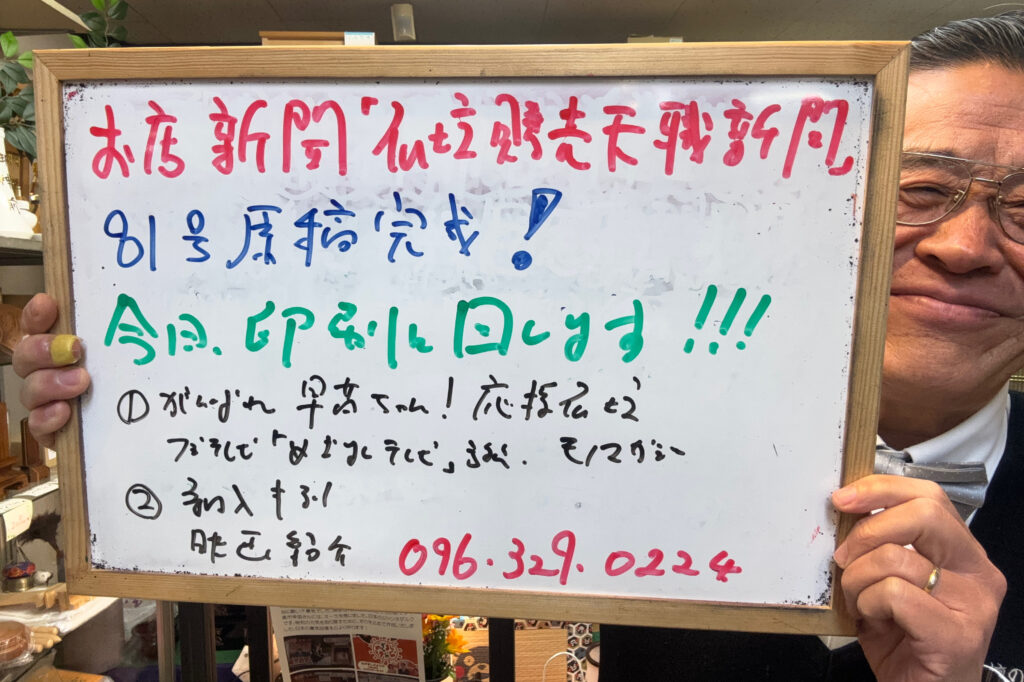 お店新聞「仏壇販売天職新聞」
81号原稿完成!
今日、印刷に回します!!!
①がんばれ早苗ちゃん!応援仏壇
フジテレビ「めざましテレビ」 モノマガジン
②
映画紹介 096.329.0224